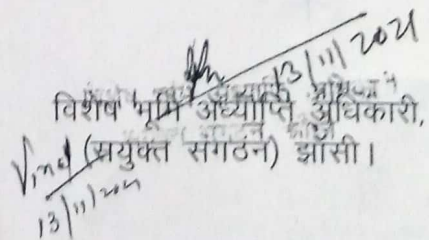 13/11/2021
विशेष भूमि अध्याप्ति अधिकारी,
(सयुक्त संगठन) झांसी।
13/11/2021